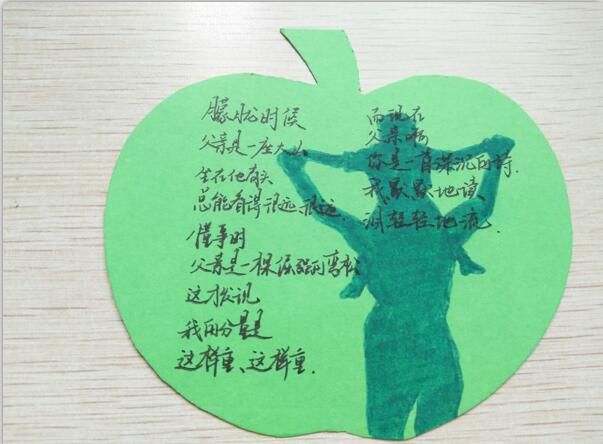 朦胧时候
父亲是一座大山
坐在他肩头
总能看得很远、很远.
懂事时
父亲是一棵倔强的弯松
这才发现
我的分量是
这样重、这样重.
而现在
父亲啊
你是一首深沉的诗.
我默默地读、
泪轻轻地流.